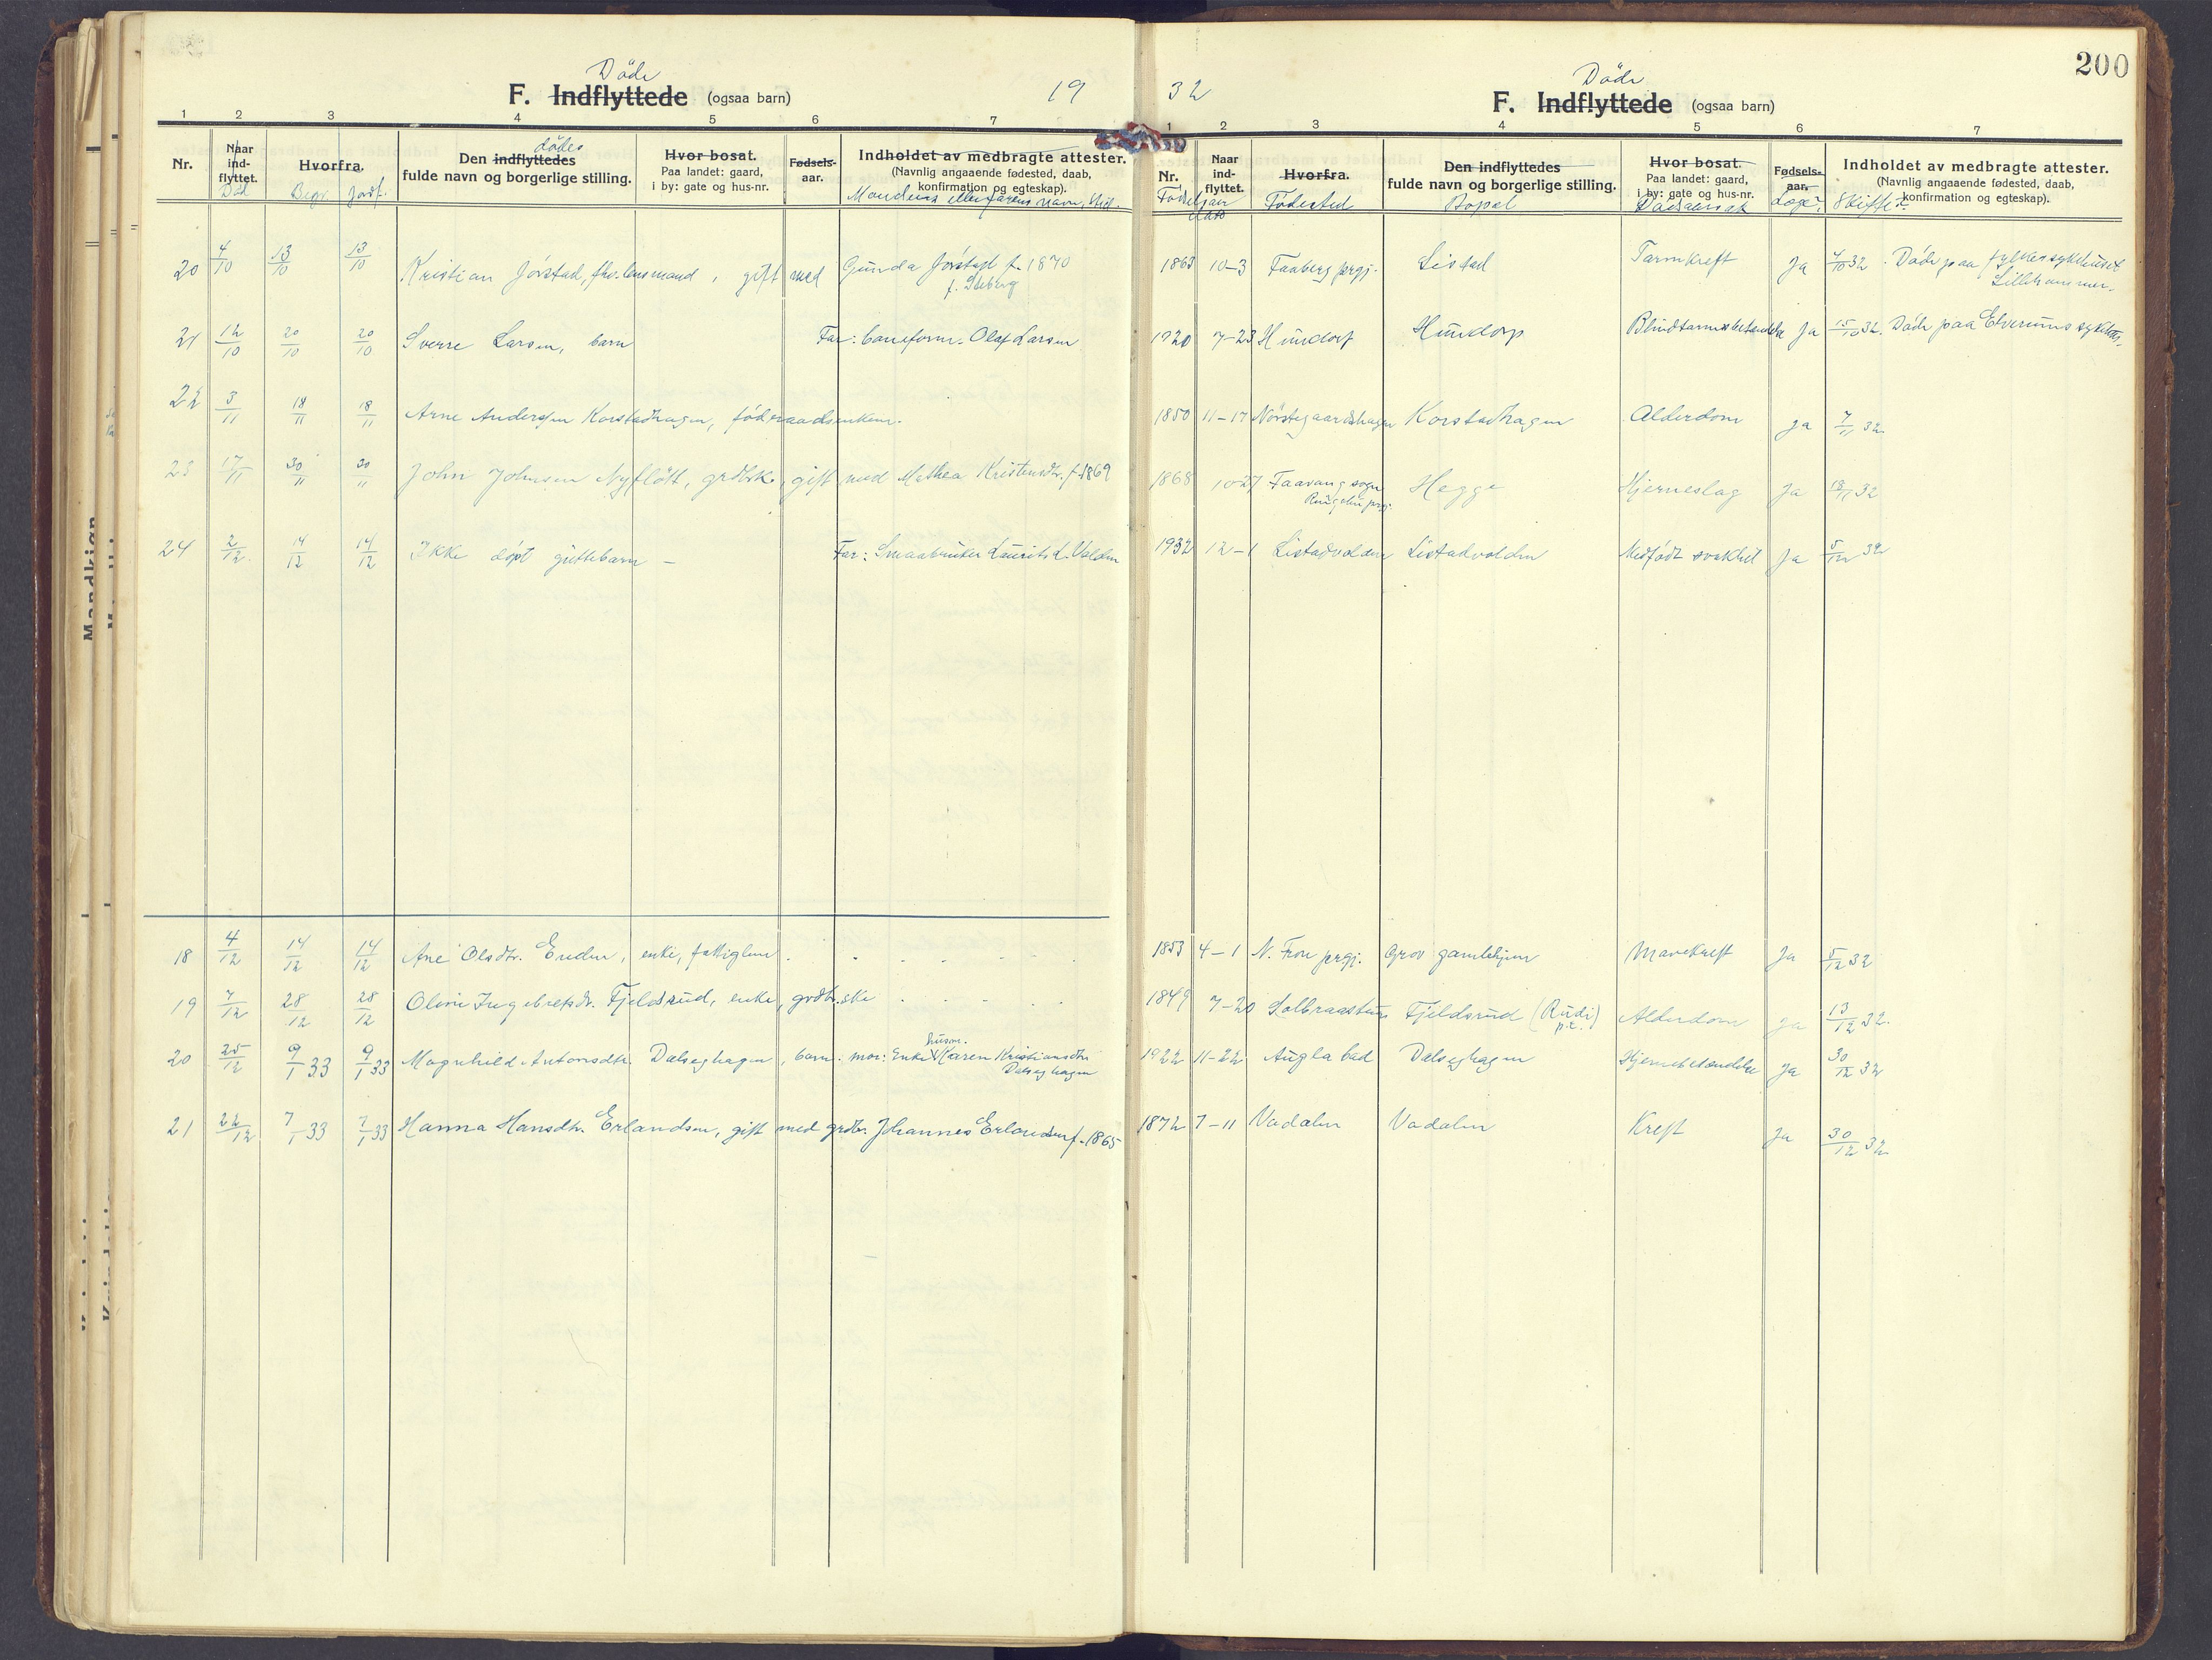 200
Døde
F. Indflyttede (ogsaa barn)
19
1 2 3 4 5 6 7
Nr. Naar ind-flyttet. Hvorfra. Den indflyttedes fulde navn og borgerlige stilling. Hvor bosat. Paa landet: gaard, i by: gate og hus-nr. Fødsels-aar. Indholdet av medbragte attester. (Navnlig angaaende fødested, daab, konfirmation og egteskap).
dødes
Død Begr. Jordf. Mandens eller farens navn, still.
20 4/10 13/10 13/10 Kristian Jørstad, fhv. lensmand, gift med Gunda Jørstad f. 1870
21 12/10 20/10 20/10 Sverre Larsen, barn Far: baneform. Olaf Larsen
22 3/11 18/11 18/11 Arne Andersen Korstadhagen, föderaadsenkem.
23 17/11 30/11 30/11 John Johnsen Nyfløtt, grdbk. gift med Mathea Kristensdtr. f. 1869
24 2/12 14/12 14/12 Ikke døpt guttebarn — Far: Smaabruker Laurits L. Volden
18 4/12 14/12 14/12 Ane Olsdtr. Enden, enke, fattiglem
19 7/12 28/12 28/12 Oline Ingebretsdr. Fjeldsrud, enke, grdbr.ske
husm.
20 25/12 9/1 33 9/1 33 Magnhild Antonsdtr. Dalseghagen, barn. mor: Enke Karen Kristiansdtr
Dalseghagen
21 22/12 7/1 33 7/1 33 Hanna Hansdtr. Erlandsen, gift med grdbr. Johannes Erlandsen f. 1865
32
Døde
F. Indflyttede (ogsaa barn)
1 2 3 4 5 6 7
Nr. Naar ind-flyttet. Hvorfra. Den indflyttedes fulde navn og borgerlige stilling. Hvor bosat. Paa landet: gaard, i by: gate og hus-nr. Fødsels-aar. Indholdet av medbragte attester. (Navnlig angaaende fødested, daab, konfirmation og egteskap).
Fødselsaar dato Fødested Bopæl Dødsaarsak Læge? Skifter
1863 10-3 Faaberg prgj. Listad Tarmkreft Ja 4/10 32. Døde paa fylkessykehuset
Lillehammer.
1920 7-23 Hundorp Hundorp Blindtarmsbetændelse Ja 15/10 32. Døde paa Elverums sykehus.
1850 11-17 Nørstegaardshagen Korstadhagen Alderdom Ja 7/11 32
1868 10-27 Faavang sogn Hegge Hjerneslag Ja 18/11 32
Ringebu prgj.
1932 12-1 Listadvolden Listadvolden Medfødt svakhet Ja 5/12 32
1853 4-1 N. Fron prgj. Grov gamlehjem Mavekreft Ja 5/12 32
1849 7-20 Solbraastuen Fjeldsrud (Rudi) Alderdom Ja 13/12 32.
p.t.
1922 11-22 Augla bad Dalseghagen Hjernebetændelse Ja 30/12 32
1872 7-11 Vadalen Vadalen Kreft Ja 30/12 32